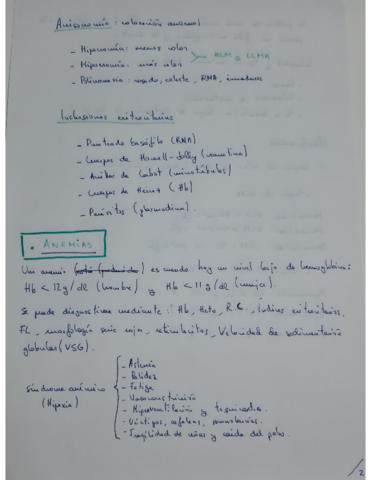 Anisocromía: coloración anormal
- Hipocromía: menos color
- Hipercromía: más color
HCM o CCMH
- Policromasia: rosado, celeste, RNA, inmaduros
Inclusiones eritrocitarias
- Punteado basófilo (RNA)
- Cuerpos de Howell-Jolly (cromatina)
- Anillos de Cabot (microtúbulos)
- Cuerpos de Heinz (Hb)
- Parásitos (plasmodium)
• ANEMIAS
Una anemia es cuando hay un nivel bajo de hemoglobina:
Hb < 12g/dl (hombre) y Hb < 11 g/dl (mujer).
Se puede diagnosticar mediante: Hb, Hcto, R.C., índices eritrocitarios,
FL, morfología serie roja, reticulocitos, Velocidad de sedimentación
globular (VSG).
Síndrome anémico
(Hipoxia)
- Astenia
- Palidez
- Fatiga
- Vasoconstricción
- Hiperventilación y taquicardia.
- Vértigos, cefaleas, somnolencias.
- Fragilidad de uñas y caída del pelo.
2